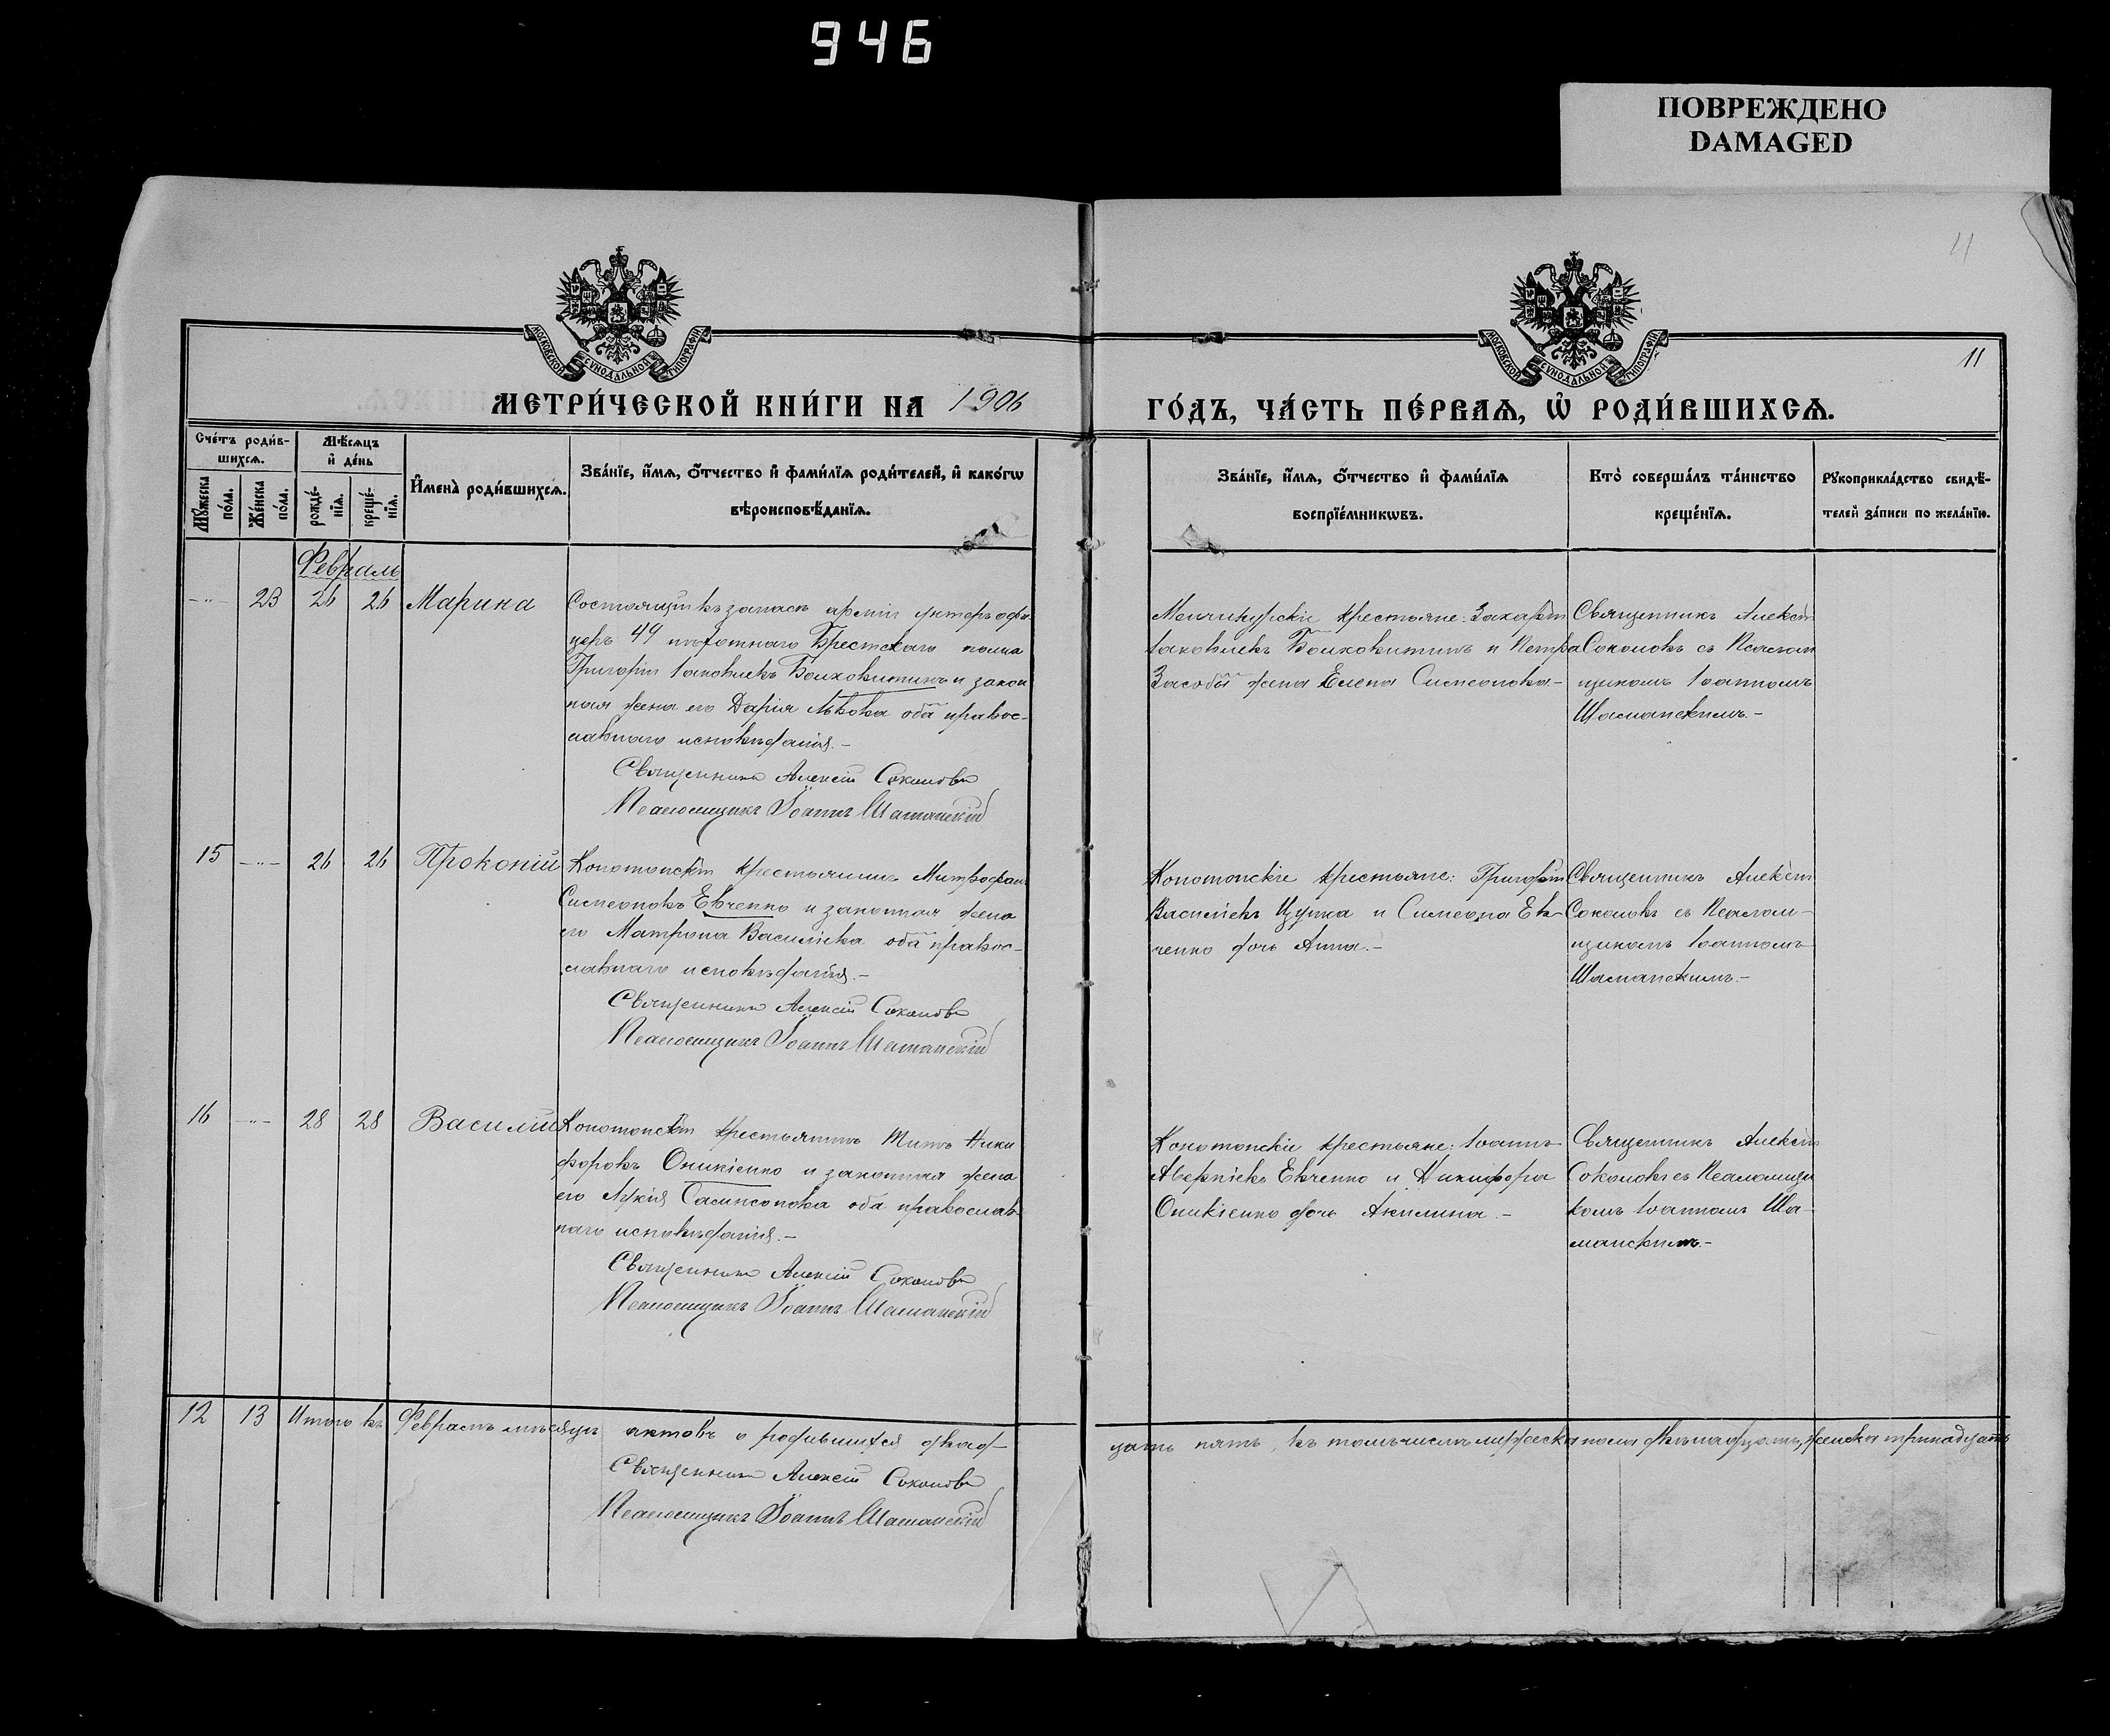 946
ПОВРЕЖДЕНО
DAMAGED
11
11
МОСКОВСКОЙ СѴНОДАЛЬНОЙ ТИПОГРАФІИ
МОСКОВСКОЙ СѴНОДАЛЬНОЙ ТИПОГРАФІИ
МЕТРИ́ЧЕСКОЙ КНИ́ГИ НА 1906
ГО́ДЪ, ЧА́СТЬ ПЕ́РВАѦ, Ѡ҆ РОДИ́ВШИХСѦ.
Сче́тъ роди́в-
шихсѧ.
Мѣ́сѧцъ
и҆ де́нь
И҆мена̀ роди́вшихсѧ.
Зва́нїе, и҆́мѧ, ѻ҆́тчество и҆ фами́лїѧ роди́телей, и҆ како́гѡ
вѣроисповѣ́данїѧ.
Мꙋ́жеска по́ла.
Же́нска по́ла.
рожде́-
нїѧ.
креще́-
нїѧ.
Зва́нїе, и҆́мѧ, ѻ҆́тчество и҆ фами́лїѧ
воспрїе́мникѡвъ.
Кто̀ соверша́лъ та́инство
креще́нїѧ.
Рꙋкоприкла́дство свидѣ́-
телей за́писи по жела́нїю.
Февраль
-"- 23 26 26 Марина
Состоящій въ запасѣ арміи унтеръ офи
церъ 49 пѣхотнаго Брестскаго полка
Григорій Іаковлевъ Болховитинъ и закон
ная жена его Дарія Львова оба правос-
лавнаго исповѣданія.-
Священникъ Алексій Соколовъ
Псаломщикъ Іоаннъ Шаманскій
крестьяне: Захарій
Іаковлевъ Болховитинъ и Петра
жена Елена Симеонова-
Священникъ Алексій
Соколовъ съ Псалом
щикомъ Іоанномъ
Шаманскимъ.-
15 -"- 26 26 Прокопій
Конотопскій крестьянинъ Митрофанъ
Симеоновъ Евченко и законная жена
его Матрона Василіева оба правос-
лавнаго исповѣданія.-
Священникъ Алексій Соколовъ
Псаломщикъ Іоаннъ Шаманскій
Конотопскіе крестьяне: Григорій
Василіевъ Цупка и Симеона Ев-
ченко дочь Анна.-
Священникъ Алексій
Соколовъ съ Псалом-
щикомъ Іоанномъ
Шаманскимъ.-
16 -"- 28 28 Василій
Конотопскій крестьянинъ Титъ Ники
форовъ Оникіенко и законная жена
его Лукія Сампсонова оба православ
наго исповѣданія.-
Священникъ Алексій Соколовъ
Псаломщикъ Іоаннъ Шаманскій
Конотопскіе крестьяне: Іоаннъ
Аверкіевъ Евченко и Никифора
Оникіенко дочь Акилина.-
Священникъ Алексій
Соколовъ съ Псаломщи
комъ Іоанномъ Ша-
манскимъ.-
12 13 Итого въ Февралѣ мѣсяцѣ актовъ о родившихся двад-
цать пять, въ томъ числѣ мужеска пола двѣнадцать, женска тринадцать
Священникъ Алексій Соколовъ
Псаломщикъ Іоаннъ Шаманскій